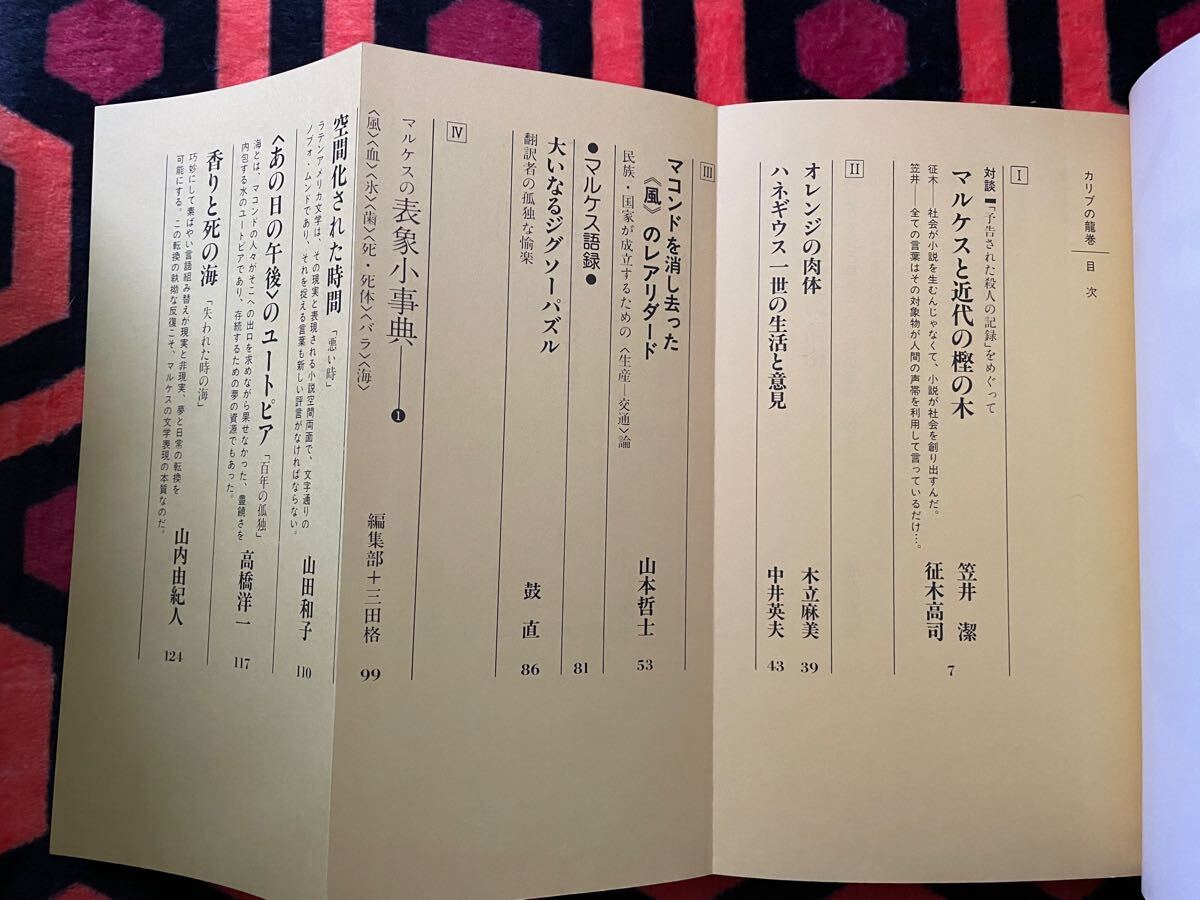 カリブの龍巻 目次
I
対談━『予告された殺人の記録』をめぐって
マルケスと近代の樫の木
征木――社会が小説を生むんじゃなくて、小説が社会を創り出すんだ。
笠井――全ての言葉はその対象物が人間の声帯を利用して言っているだけ…。
笠井 潔
征木高司
7
II
オレンジの肉体
木立麻美
39
ハネギウス一世の生活と意見
中井英夫
43
III
マコンドを消し去った
《風》のレアリダード
民族・国家が成立するための〈生産―交通〉論
山本哲士
53
●マルケス語録●
81
大いなるジグソーパズル
翻訳者の孤独な愉楽
鼓 直
86
IV
マルケスの表象小事典――❶
〈風〉〈血〉〈氷〉〈歯〉〈死・死体〉〈バラ〉〈海〉
編集部+三田格
99
空間化された時間「悪い時」
ラテンアメリカ文学は、その現実と表現される小説空間両面で、文字通りの
ノブォ・ムンドであり、それを捉える言葉も新しい評言がなければならない。
山田和子
110
〈あの日の午後〉のユートピア「百年の孤独」
海とは、マコンドの人々がそこへの出口を求めながら果せなかった、豊饒さを
内包する水のユートピアであり、存続するための夢の資源でもあった。
高橋洋一
117
香りと死の海「失われた時の海」
巧妙にして素ばやい言語組み替えが現実と非現実、夢と日常の転換を
可能にする。この転換の執拗な反復こそ、マルケスの文学表現の本質なのだ。
山内由紀人
124